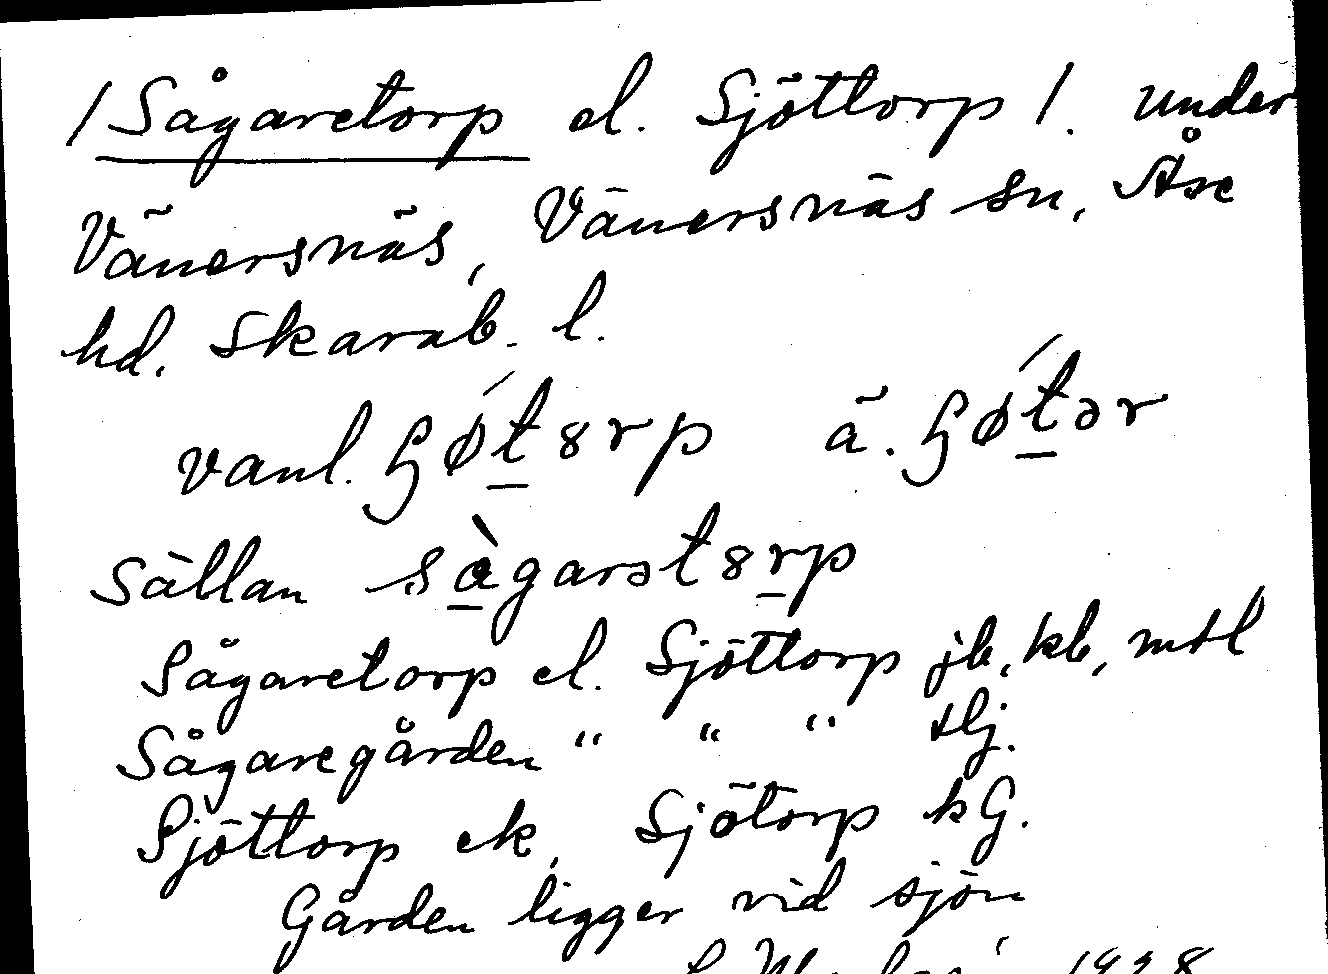 /Sågaretorp el. Sjöttorp/. under
Vänersnäs, Vänersnäs sn, Åse
hd. Skarab. l.
vanl. ɧǿt8rp ä. ɧǿtər
Sällan sàgarət8rp
Sågaretorp el. Sjöttorp jb, kb, mtl
Sågaregården " " " tlj.
Sjöttorp ek, Sjötorp kG.
Gården ligger vid sjön